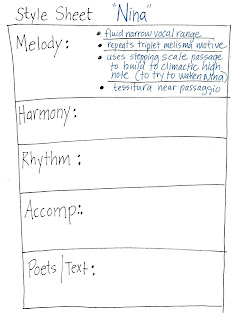 Style Sheet "Nina"
Melody:
• fluid narrow vocal range
• repeats triplet melisma motive
• uses stepping scale passage
to build to climactic high
note (to try to waken Nina)
• tessitura near passaggio
Harmony:
Rhythm:
Accomp.:
Poets/Text: